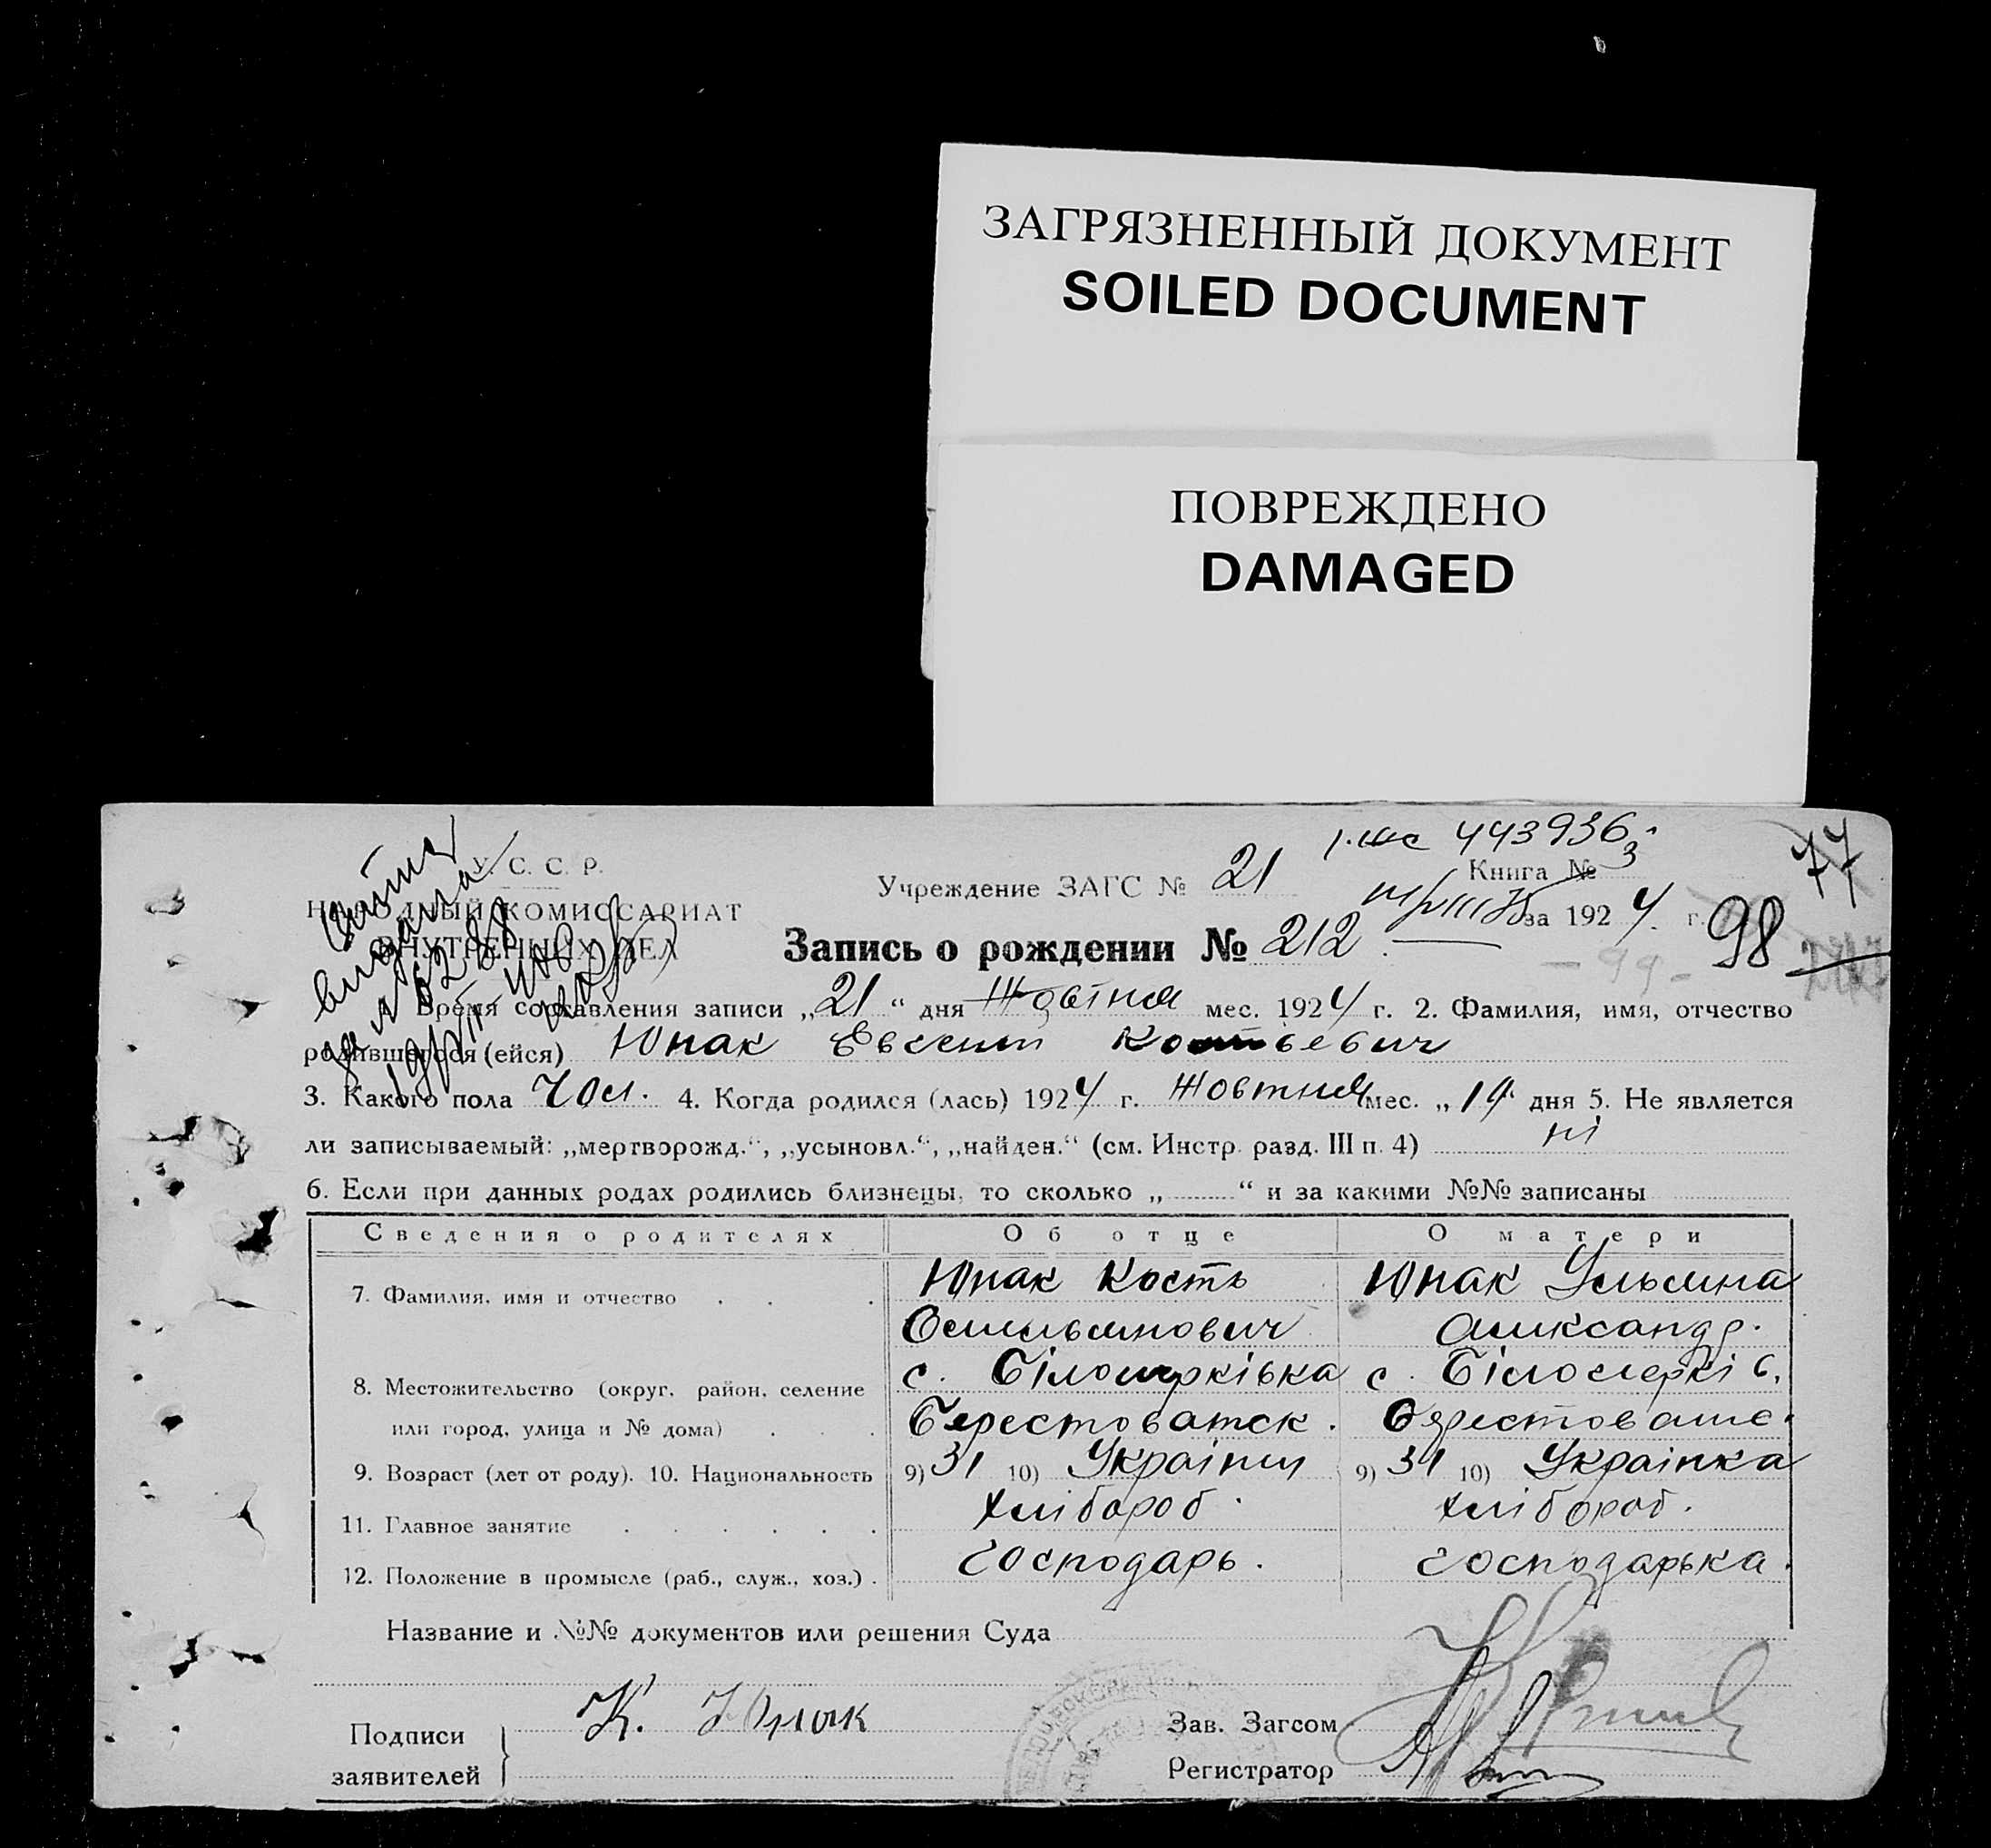 ЗАГРЯЗНЕННЫЙ ДОКУМЕНТ
SOILED DOCUMENT
ПОВРЕЖДЕНО
DAMAGED
443936
77
У. С. С. Р.
Учреждение ЗАГС № 21
Книга № 3
НАРОДНЫЙ КОМИССАРИАТ
за 1924 г. 98
ВНУТРЕННИХ ДЕЛ
Запись о рождении № 212
- 99 -
1. Время составления записи „21“ дня Жовтня мес. 1924 г. 2. Фамилия, имя, отчество
родившегося (ейся) Юпак Евгений Костьевич
3. Какого пола Чол. 4. Когда родился (лась) 1924 г. Жовтня мес. „19 дня 5. Не является
ли записываемый: „мертворожд.“, „усыновл.“, „найден.“ (см. Инстр. разд. III п. 4) ні
6. Если при данных родах родились близнецы, то сколько „ “ и за какими №№ записаны
Сведения о родителях Об отце О матери
7. Фамилия, имя и отчество Юпак Кость Юпак Ульяна
Омельянович Алиександр.
8. Местожительство (округ, район, селение с. Біломерківка с. Біломеркі в.
или город, улица и № дома) Берестоватск.
9. Возраст (лет от роду). 10. Национальность 9) 31 10) Українец 9) 31 10) Українка
11. Главное занятие хлібороб. хлібороб.
12. Положение в промысле (раб., служ., хоз.) господарь. господарька.
Название и №№ документов или решения Суда
Подписи К. Юпак Зав. Загсом
заявителей Регистратор